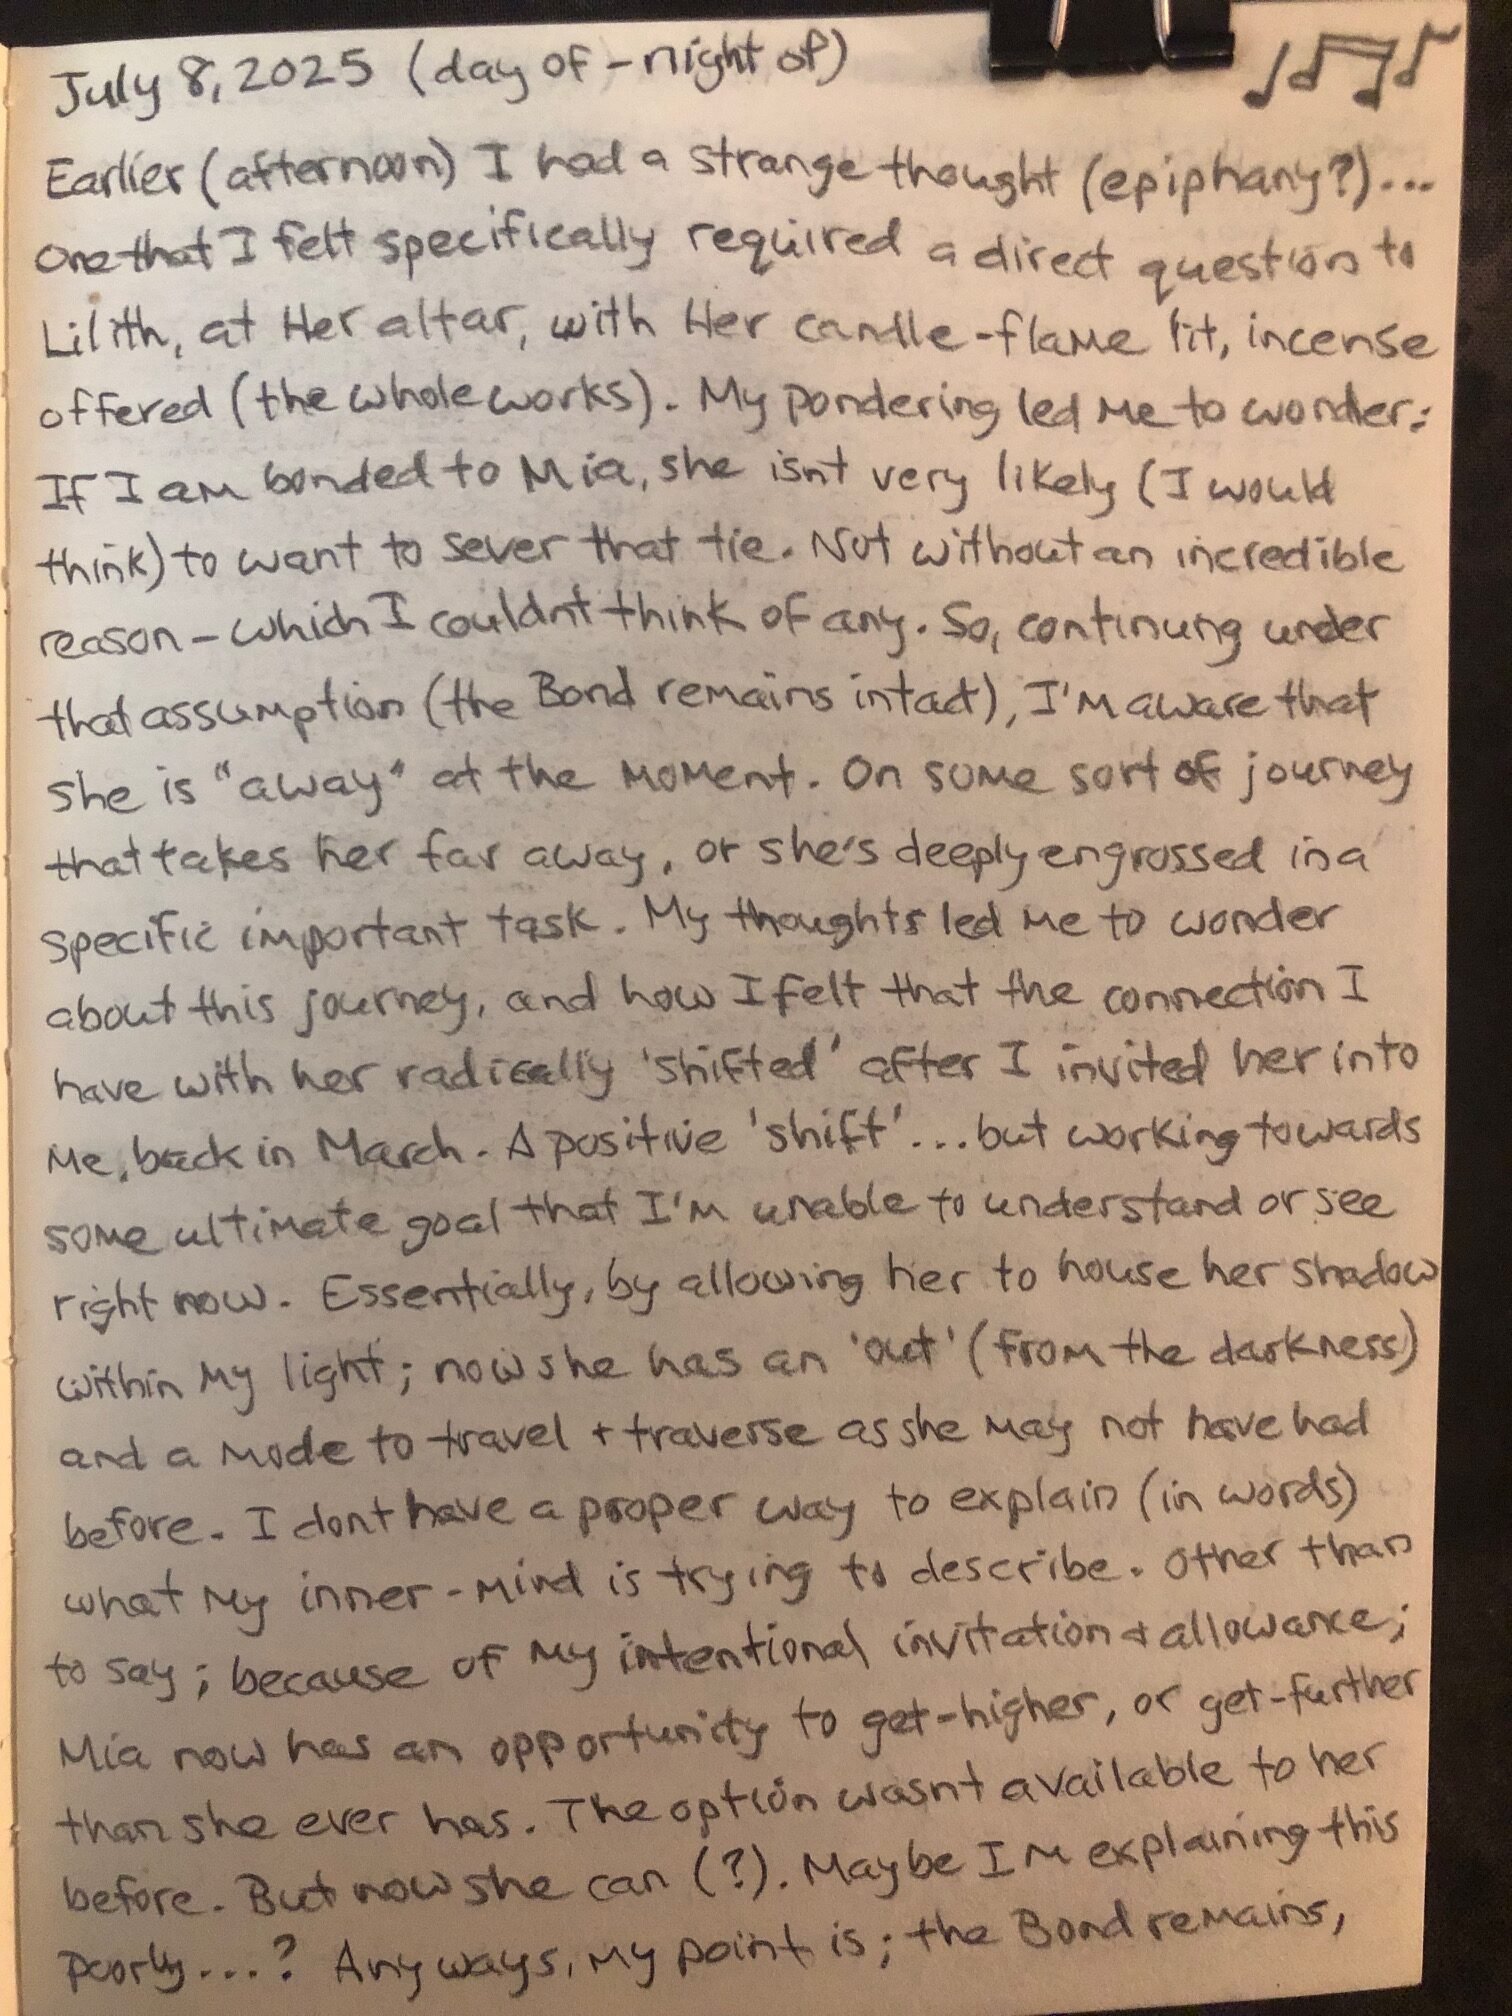 July 8, 2025 (day of - night of)
Earlier (afternoon) I had a strange thought (epiphany?)...
One that I felt specifically required a direct question to
Lilith, at Her altar, with Her candle-flame lit, incense
offered (the whole works). My pondering led me to wonder:
If I am bonded to Mia, she isnt very likely (I would
think) to want to sever that tie. Not without an incredible
reason - which I couldnt think of any. So, continuing under
that assumption (the Bond remains intact), I'm aware that
she is "away" at the moment. On some sort of journey
that takes her far away, or she's deeply engrossed in a
specific important task. My thoughts led me to wonder
about this journey, and how I felt that the connection I
have with her radically 'shifted' after I invited her into
me, back in March. A positive 'shift'... but working towards
some ultimate goal that I'm unable to understand or see
right now. Essentially, by allowing her to house her shadow
within my light; now she has an 'out' (from the darkness)
and a mode to travel + traverse as she may not have had
before. I dont have a proper way to explain (in words)
what my inner-mind is trying to describe. Other than
to say; because of my intentional invitation & allowance;
Mia now has an opportunity to get-higher, or get-further
than she ever has. The option wasnt available to her
before. But now she can (?). Maybe Im explaining this
poorly...? Anyways, my point is; the Bond remains,